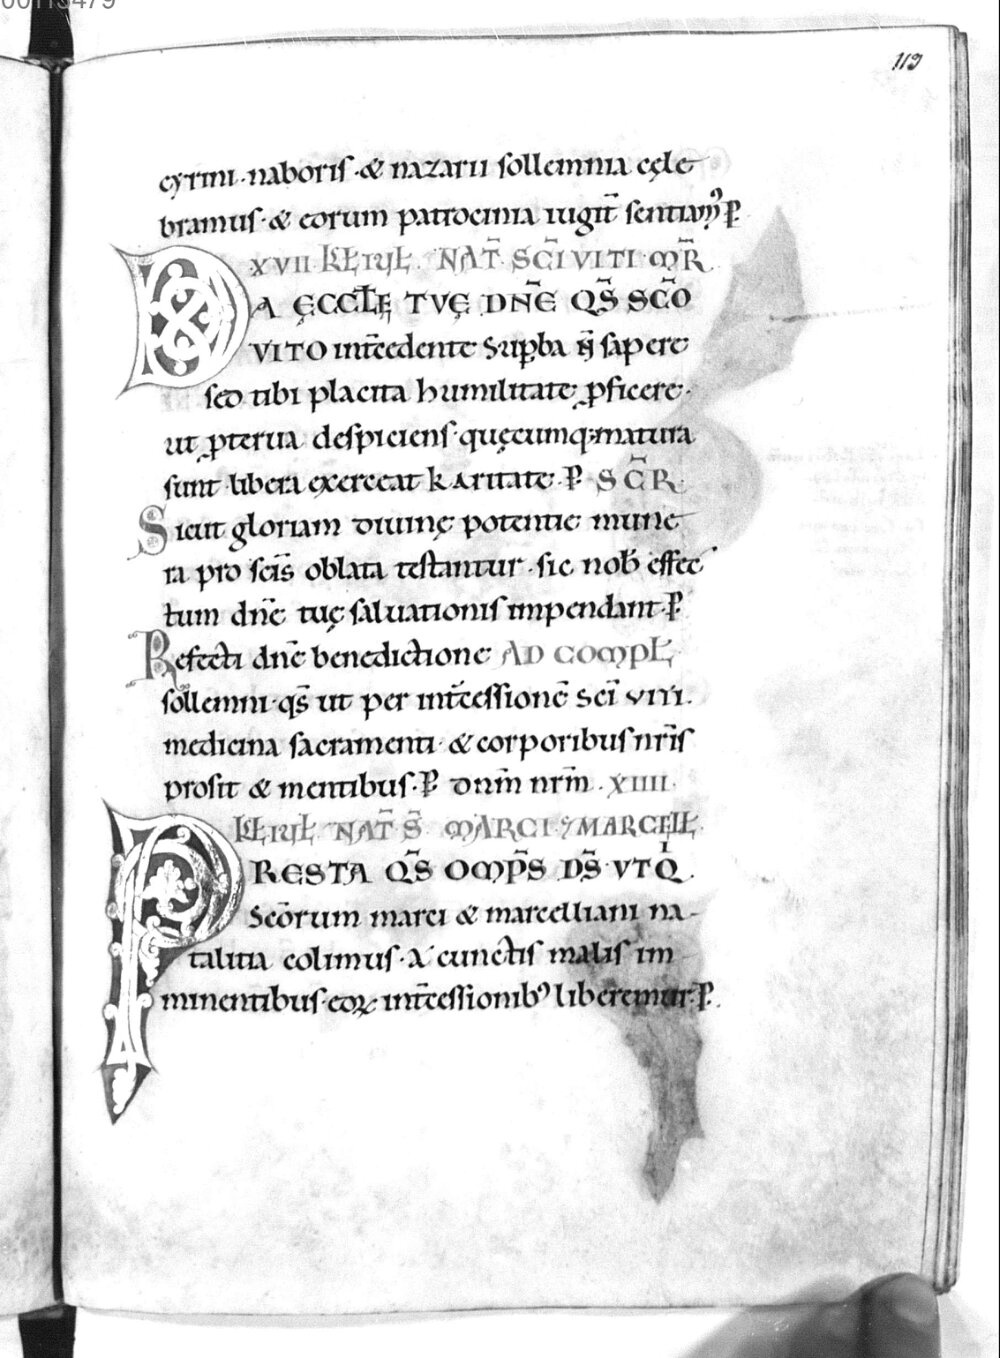 00113479
119
cyrini · naboris · & nazarii sollemnia cęle
bramus · & eorum patrocinia iugit̄ sentiam᾽ ꝑ
XVII · KŁ IUŁ · NAT̄ SC̄I VITI · M̄R
DA ĘCCLĘ̄ TVĘ DN̄E QS̄ SC̄O
VITO int̄cedente Suꝑba n̄ sapere
sed tibi placita humilitate ꝓficere ·
ut ꝓterua despiciens · quęcumq; matura
sunt · libera exerceat karitate · ꝑ · SC̄R
Sicut gloriam diuinę potentie mune
ra pro sc̄is oblata testantur · sic nob̄ effec
tum dn̄e tuę saluationis impendant · ꝑ
Refecti dn̄e benedictione AD COMPŁ
sollemni · qs̄ ut per int̄cessionē sc̄i viti ·
medicina sacramenti · & corporibus nr̄is
prosit & mentibus · ꝑ dnm̄ nrm̄ · XIIII ·
KŁ IUŁ NAT̄ S̄ MARCI · ⁊ MARCEŁŁ
PRESTA QS̄ OMP̄S DS̄ · VT Q̇ ·
Scōrum marci & marcelliani na-
talitia colimus · a cunctis malis im
minentibus · eoꝝ int̄cessionib᾽ liberemur · ꝑ ·